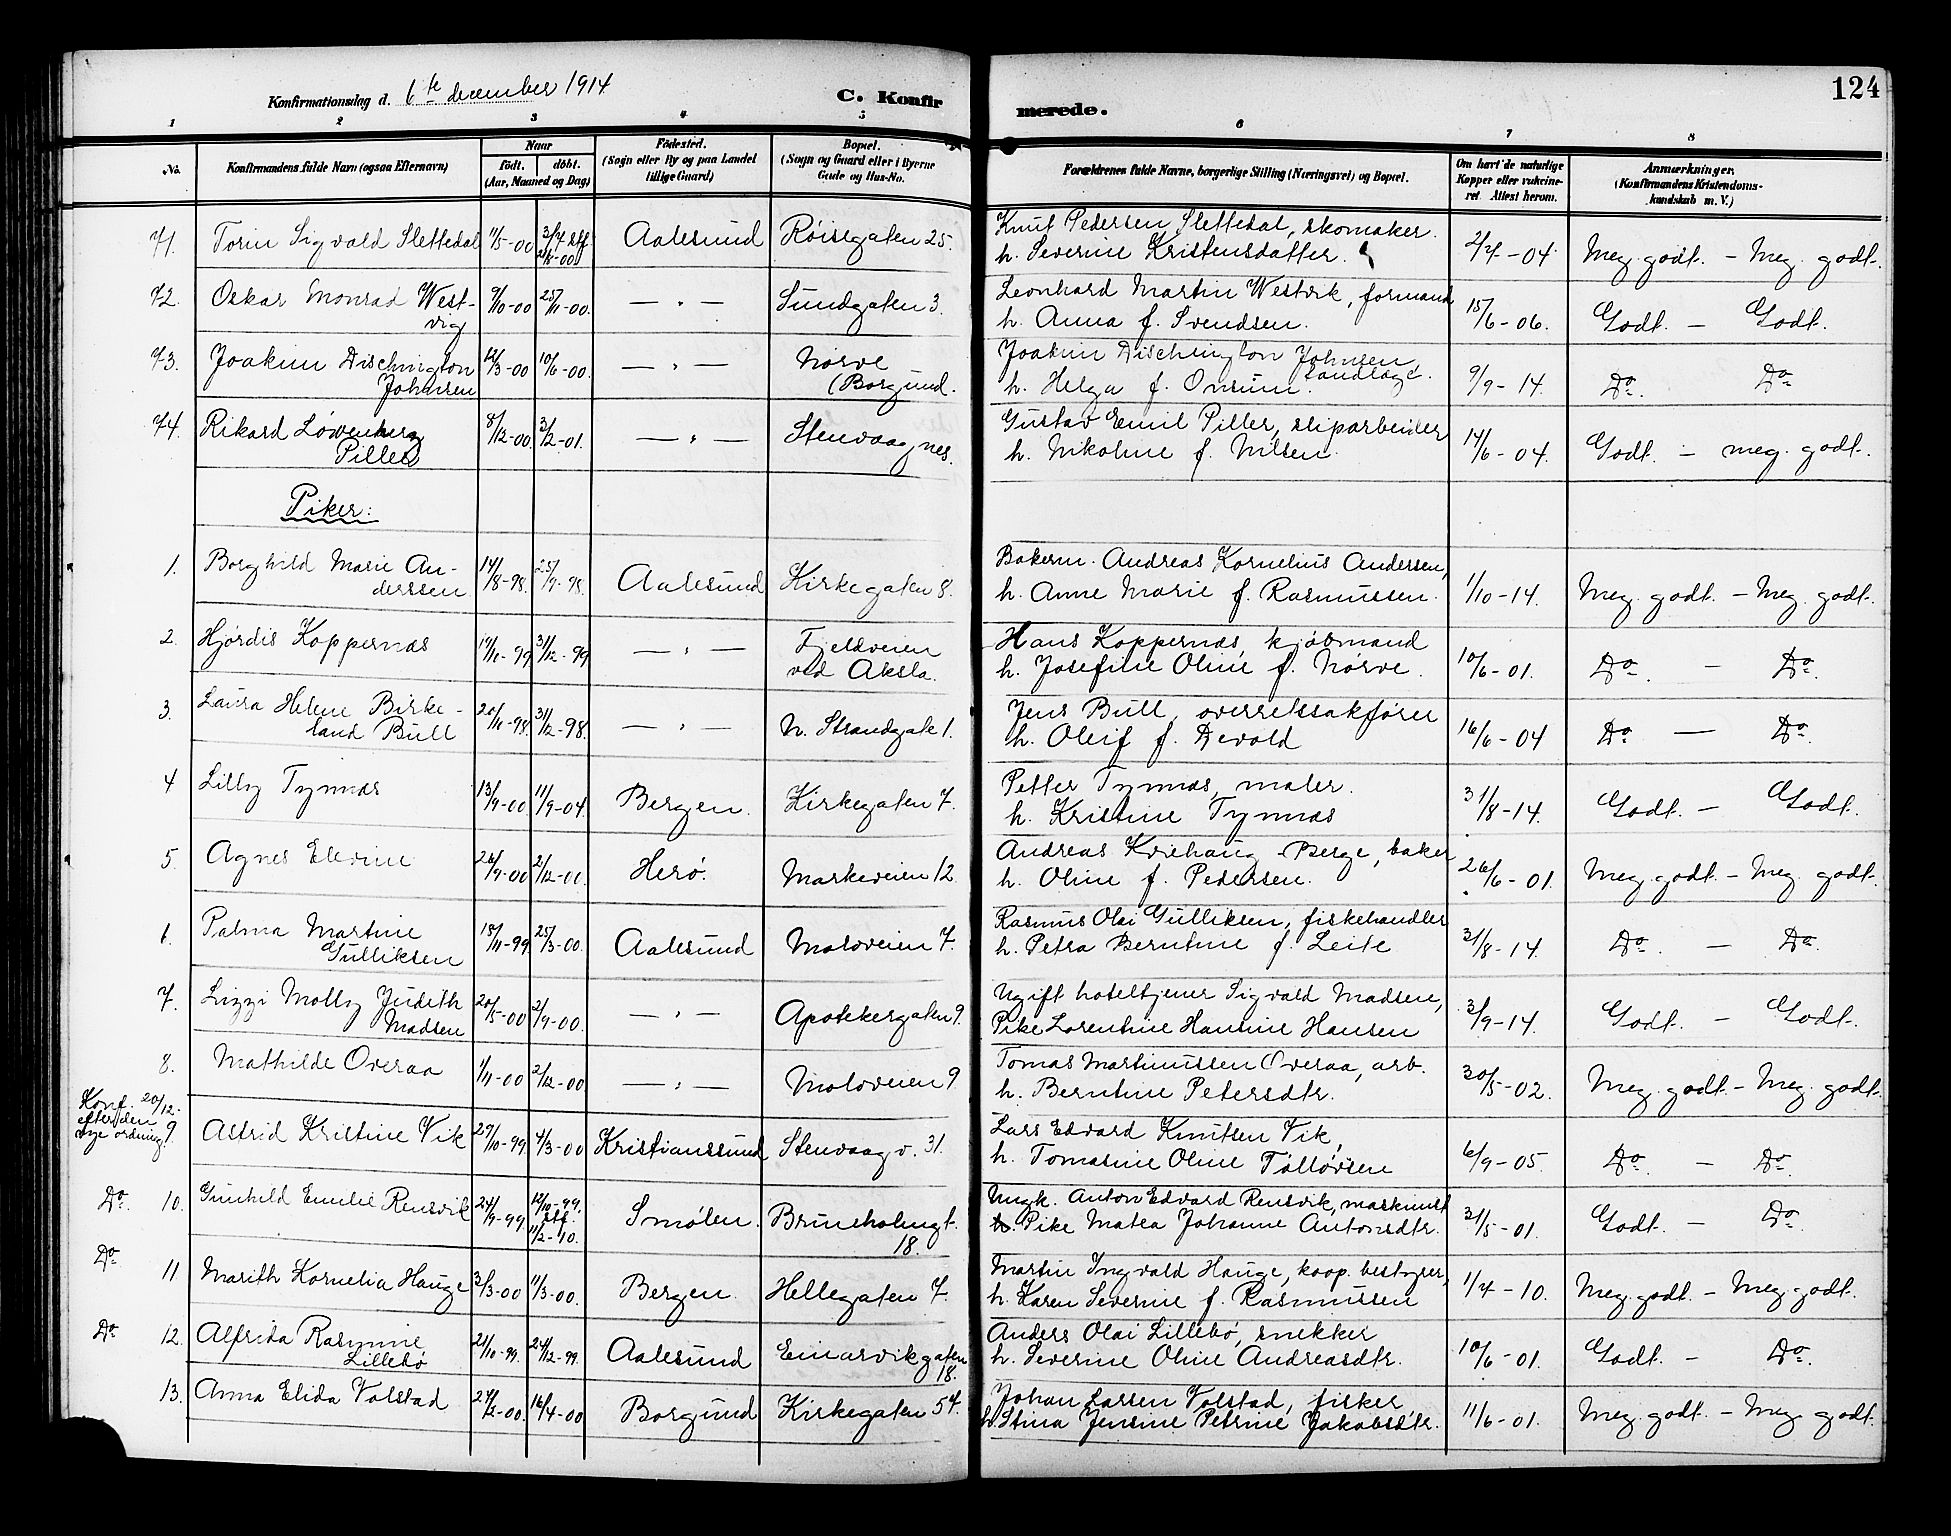 Konfirmationsdag d. 6te december 1914
C. Konfirmerede.
124
1 2 3 4 5 6 7 8
No.
Konfirmandens fulde Navn (ogsaa Efternavn)
Naar
födt. döbt.
(Aar, Maaned og Dag)
Födested.
(Sogn eller By og paa Landet
tillige Gaard)
Bopæl.
(Sogn og Gaard eller i Byerne
Gade og Hus-No.
Forældrenes fulde Navne, borgerlige Stilling (Næringsvei) og Bopæl.
Om havt de naturlige
Kopper eller vakcine-
ret. Attest herom.
Anmærkninger.
(Konfirmandens Kristendoms-
kundskab m. V.)
71. Torin Sigvald Slettedal 1/5-00 3/7 stf. Aalesund Røisegaten 25. Knut Pedersen Slettedal, skomaker. 2/7-04 Meg. godt. - Meg. godt.
h. Severine Kristensdatter.
72. Oskar Monrad West- 9/10-00 25/11-00. — " — Sundgaten 3. Leonhard Martin Westvik, formand 15/6-06. Godt. - Godt.
vig h. Anna f. Svendsen.
73. Joakim Dischington 12/3-00 10/6-00. — " — Nørve Joakim Dischington Johnsen 9/9-14. Do. Do.
Johnsen (Borgund. h. Helga f. Onsum.
74. Rikard Løvenberg 8/12-00. 3/2-01. — " — Stenvaagnes. Gustav Emil Piller, sliparbeider 14/6-04. Godt. - meg. godt.
Piller h. Nikoline f. Nilsen.
Piker:
1. Borghild Marie An- 14/8-98. 25/9-98. Aalesund Kirkegaten 8. Bakerm. Andreas Kornelius Andersen, 1/10-14. Meg. godt. - Meg. godt.
derssen h. Anne Marie f. Rasmussen.
2. Hjørdis Koppernæs 19/11-99 31/12-99 — " — Fjeldveien Hans Koppernæs, kjøbmand 10/6-01. Do. - Do.
ved Aksla. h. Josefine Oline f. Nørve.
3. Laura Helene Birke- 20/11-98. 31/12-98. — " — N. Strandgate 1. Jens Bull, overretssakfører 16/6-04 Do. — Do.
land Bull h. Oleif f. Devold
4 Lilly Tynnæs 13/9-00 11/9-04. Bergen. Kirkegaten 7. Petter Tynnæs, maler. 31/8-14. Godt. - Godt.
h. Kristine Tynnæs
5. Agnes Elevine 26/9-00 2/12-00. Herø. Markeveien 12 Andreas Berge, baker 26/6-01. Meg. godt. - Meg. godt.
h. Oline f. Pedersen.
6. Palma Martine 18/11-99 25/3-00. Aalesund Moloveien 7. Rasmus Olai Gulliksen, fiskehandler 31/8-14. Do. - Do.
Gulliksen h. Petra Berntine f. Leite
7. Lizzi Molly Judith 20/5-00 2/9-00. — " — Apotekergaten 9. Ugift hoteltjener Sigvald Madsen, 3/9-14. Godt. - Godt.
Madsen Pike Lorentine Hannine Hansen
8. Mathilde Overaa 1/11-00 2/12-00 — " — Moloveien 9. Tomas Martinussen Overaa, arb. 30/5-02. Meg. godt. - Meg. godt.
h. Berntine Petersdtr.
Konf. 20/12.
efter den
nye ordning.
9. Astrid Kristine Vik 29/10-99. 4/3-00 Kristianssund Stenvaagv. 31. Lars Edvard Knutsen Vik, 6/9-05. Do. - Do.
h. Tomasine Oline Tollovsen
Do. 10. Gunhild Emelie Rensvik 24/9-99. 12/10-99. Smølen. Bruneholmgt. Ungk. Anton Edvard Rensvik, maskinist 31/5-01. Godt. - Do.
stf. 11/2-10. 18. Pike Matea Johanne Antonsdtr.
Do. 11 Marith Kornelia Hauge 3/3-00 11/3-00. Bergen. Hellegaten 7. Martin Ingvald Hauge, koop. bestyrer, 1/7-10. Meg. godt. - Meg. godt.
h. Karen Severine f. Rasmussen
Do. 12. Alfrida Rasmine 21/10-99. 24/12-99. Aalesund Einarvikgaten Anders Olai Lillebø, snekker 10/6-01. Godt. - Do.
Lillebø 18. h. Severine Oline Andreasdtr.
13. Anna Elida Volstad 27/2-00. 16/4-00 Borgund Kirkegaten 57. Johan Larsen Volstad, fisker 11/6-01. Meg. godt. - Meg. godt.
h. Stina Jensine Petrine Jakobsdtr.